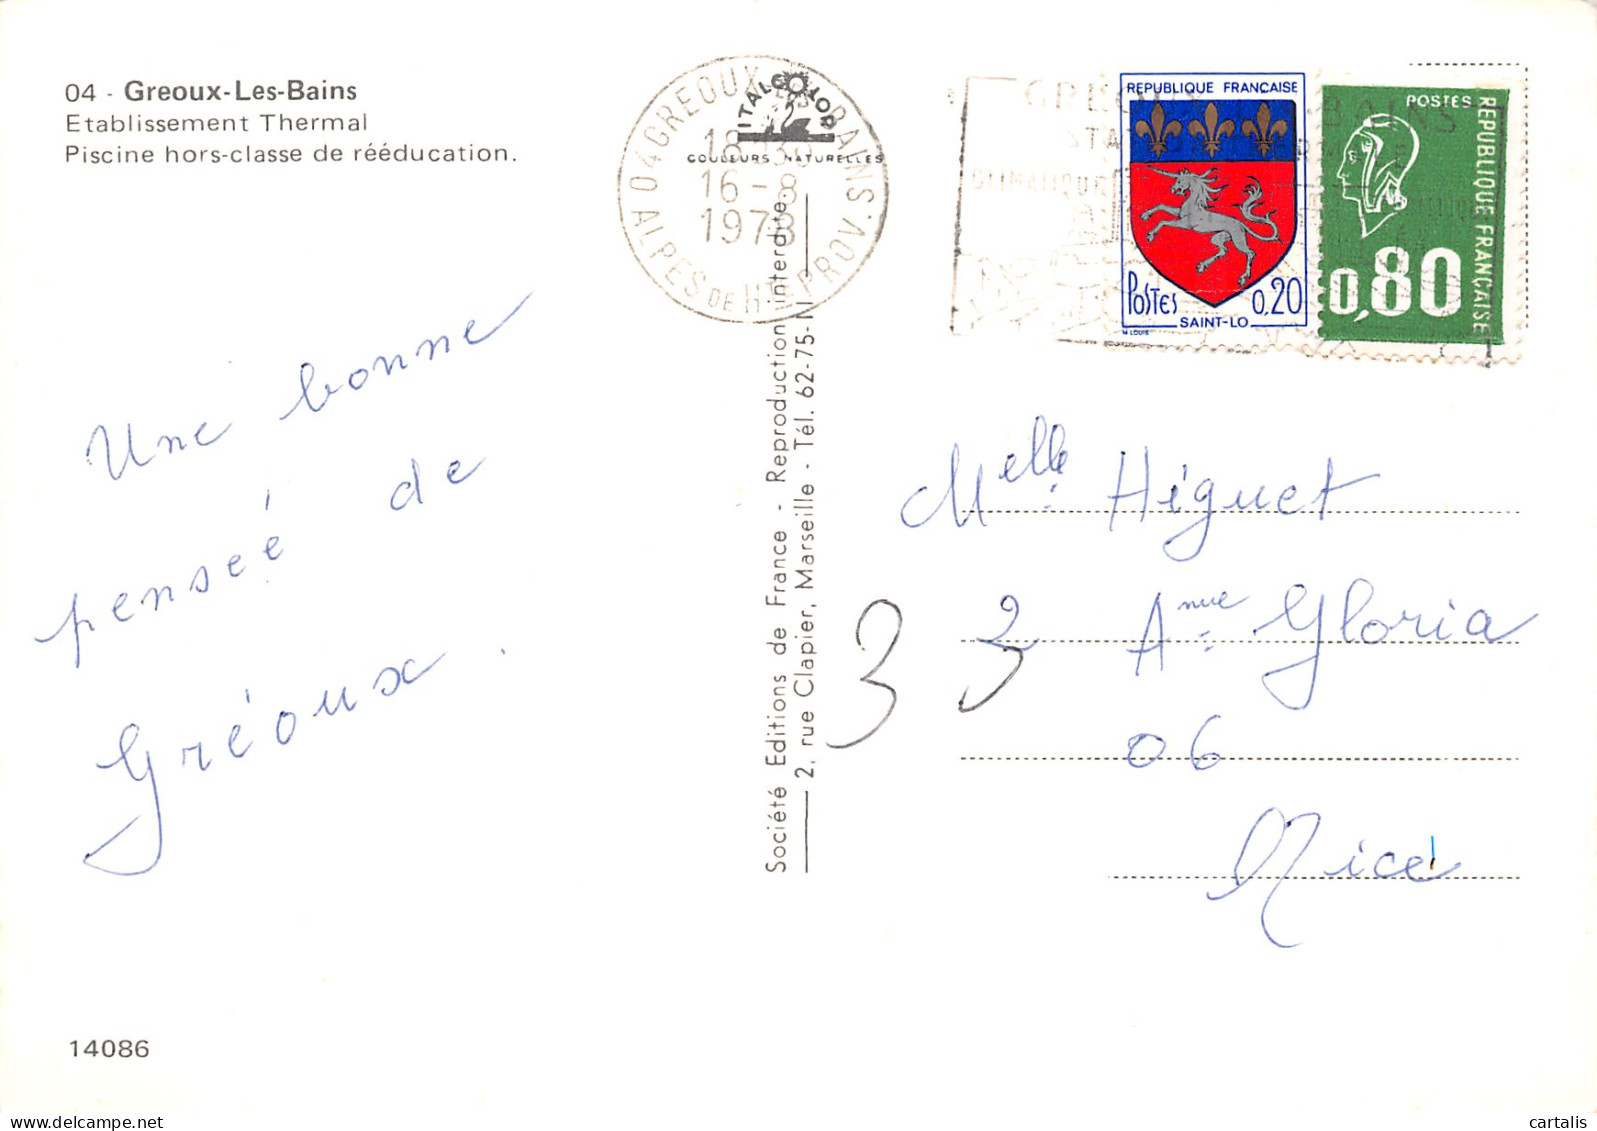 04 - Greoux-Les-Bains
Etablissement Thermal
Piscine hors-classe de rééducation.
Une bonne
penseé de
Gréoux.
14086
04 GREOUX LES BAINS
18 H 30
16 - 8
1978
ALPES DE HTE PROV.
ITALCOLOR
COULEURS NATURELLES
Société Editions de France - Reproduction interdite.
2, rue Clapier, Marseille - Tél. 62-75-N
REPUBLIQUE FRANÇAISE
POSTES 0,20
SAINT-LO
M. LOUIS
POSTES
REPUBLIQUE FRANÇAISE
0,80
GREOUX BAINS
CLIMATIQUE
Melle Héguet
33 2 Anue Gloria
06
Nice
cartalis